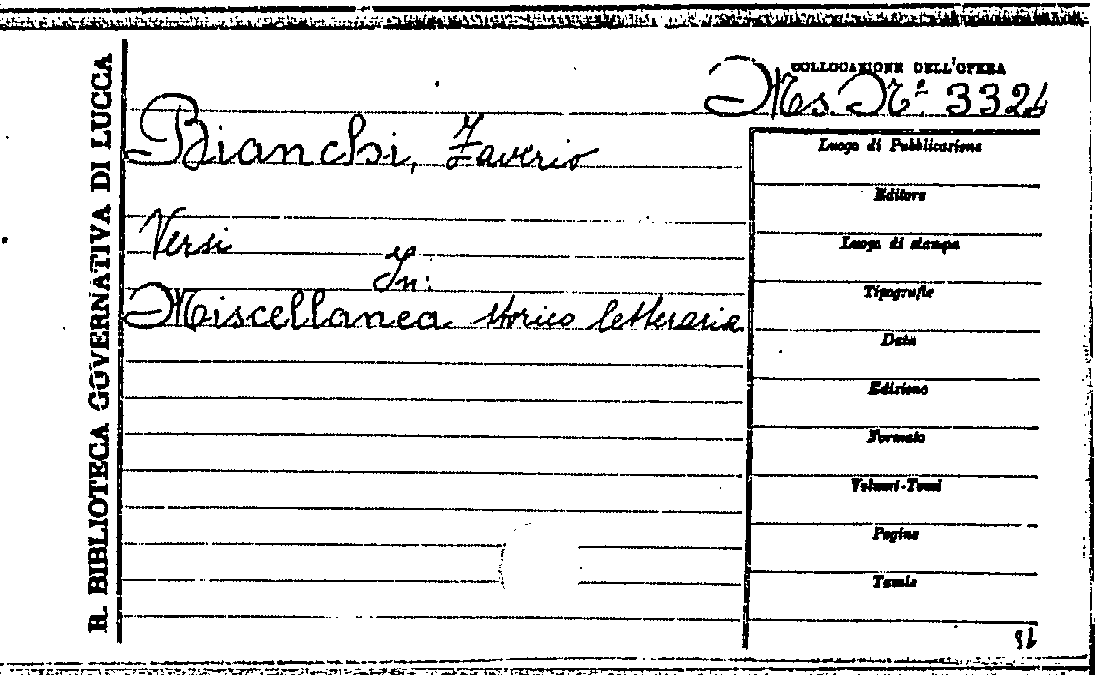 R. BIBLIOTECA GOVERNATIVA DI LUCCA
COLLOCAZIONE DELL'OPERA
Ms. N.º 3324
Bianchi, Zaverio
Versi
In:
Miscellanea storico letteraria
Luogo di Pubblicazione
Editore
Luogo di stampa
Tipografie
Data
Edizione
Formato
Volumi-Tomi
Pagine
Tavole